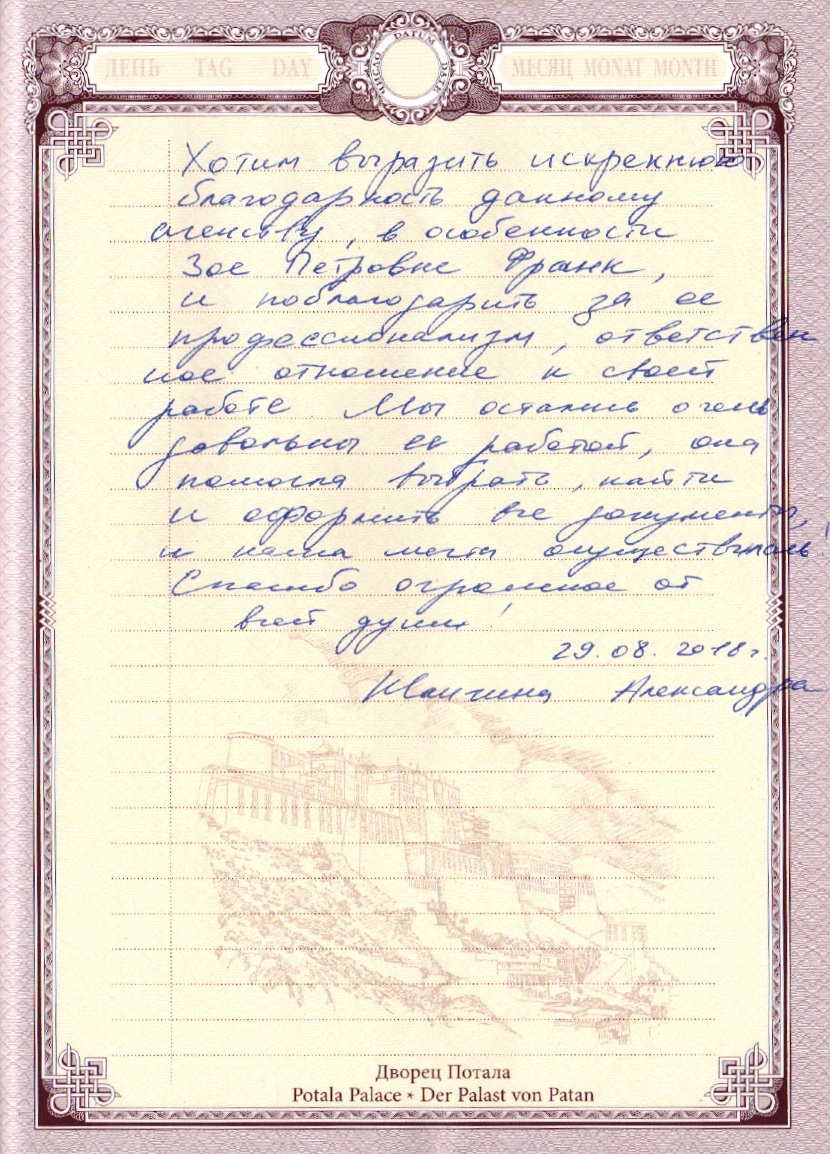 ДЕНЬ TAG DAY
ЧИСЛО DATUM DATE
МЕСЯЦ MONAT MONTH
Хотим выразить искреннюю
благодарность данному
агенству, в особенности
Зое Петровне Франк,
и поблагодарить за ее
профессионализм, ответствен
ное отношение к своей
работе. Мы остались очень
довольны ее работой, она
помогла выбрать, найти
и оформить все документы,
и наша мечта осуществилась!
Спасибо огромное от
всей души!
29.08.2018г.
Александра
Дворец Потала
Potala Palace * Der Palast von Patan